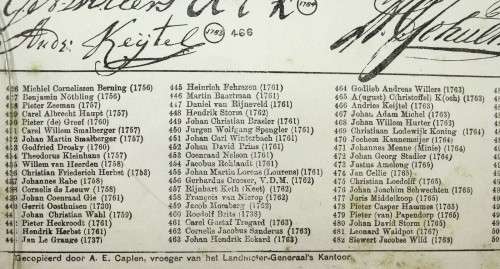 1764
Ands: Keijtel 1763 466
426 Michiel Cornelissen Berning (1756)
427 Benjamin Nöthling (1757)
428 Pieter Zeeman (1757)
429 Carel Albrecht Haupt (1757)
430 Pieter (de) Groef (1760)
431 Carel Willem Smalberger (1757)
432 Johan Martin Smalberger (1757)
433 Godfried Drosky (1760)
434 Theodorus Kleinhans (1757)
435 Willem van Heerden (1758)
436 Christiaan Friederich Herbst (1758)
437 Johannes Rabe (1758)
438 Cornelis de Leeuw (1758)
439 Johan Coenraad Gie (1761)
440 Gerrit Oosthuisen (1720)
441 Johan Christian Wahl (1759)
442 Pieter Heckroodt (1761)
443 Hendrik Herbst (1761)
444 Jan Le Grauge (1737)
445 Heinrich Fehrszen (1761)
446 Martin Baartman (1761)
447 Daniel van Rijneveld (1761)
448 Hendrik Storm (1762)
449 Johan Christian Brasler (1761)
450 Jurgen Wolfgang Spengler (1761)
451 Johan Carl Winterbach (1761)
452 Johan David Prius (1761)
453 Coenraad Nelson (1761)
454 Jacobus Roblauh (1761)
455 Johan Martin Loreas (Lourens) (1761)
456 Gerhardus Croeser, V.D.M. (1762)
457 Rijnhart Keth (Keet) (1762)
458 François van Nierop (1762)
459 Jacob Morsberg (1762)
461 Carel Gustaf Tregard (1763)
462 Cornelis Jacobus Sanderus (1763)
463 Johan Hendrick Eckard (1763)
464 Godlieb Andreas Willers (1763)
465 A(ugust) Christoffel K(och) (1763)
466 Andries Keijtel (1763)
467 Johan Adam Michel (1763)
468 Johan Willem Hurter (1763)
469 Christiaan Lodewijk Koning (1764)
470 Jochem Kannemeijer (1764)
471 Johannes Meane (Minie) (1764)
472 Johan Georg Stadler (1764)
473 Justus Amelong (1765)
474 Jan Cellie (1765)
475 Christian Leedolff (1765)
476 Johan Joachim Schvechten (1765)
477 Juris Middelkoop (1765)
478 Pieter Casper Hammes (1765)
479 Pieter (van) Papendorp (1765)
480 Johan David Storm (1765)
481 Leonard Waldpot (1767)
482 Siewert Jacobus Wild (1763)
Gecopieerd door A. E. Caplen, vroeger van het Landmeter-Generaal's Kantoor.